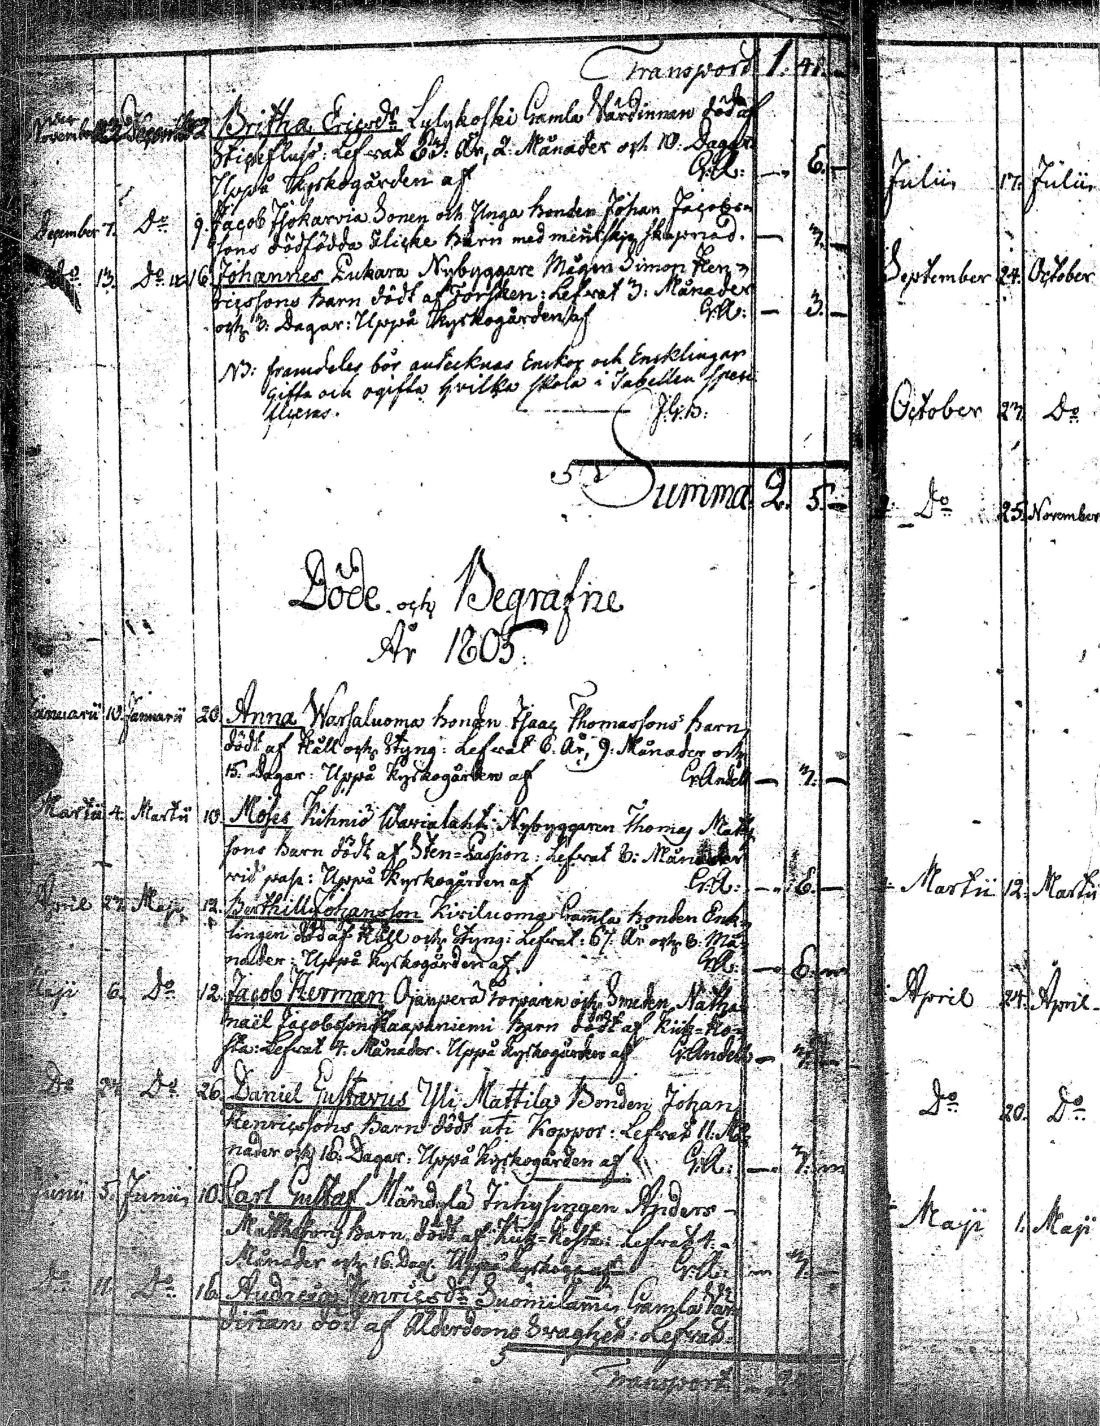 Transport 1. 41.
November 2. Britha Ericsdr Lylykoski Gamla Värdinnan död af
Lefvat 63: År, 2: Månader och 10: Dagar
Uppå Kyrkogården af Gr.A: — 6. —
December 7. Do 9. Jacob Isokarvia Sonen och Unga bonden Johan Jacobs-
sons dödfödda Flicke Barn med mennisko skapnad. —
Do 13. Do 16. Johannes Luhara Nybyggare Mågen Simon Hen-
ricssons Barn dödt af Torsken: Lefvat 3: Månader
och 3: Dagar: Uppå Kyrkogården af Gr.A: — 3. —
NB: framdeles bör antecknas Enkor och Encklingar
gifta och ogifta hvilka skola i Tabellen speci-
ficeras.
Summa 2. 5. —
Döde och Begrafne
År 1805.
Januarii 10. Januarii 20. Anna Warsaluoma bonden Isaac Thomassons barn
dödt af Håll och Styng: Lefvat 6. År, 9: Månader och
15. Dagar: Uppå Kyrkogården af Gr.Andell — 7. —
Martii 4. Martii 10. Moses Kihniö Warialahti Nybyggaren Thomas Matts-
sons barn dödt af Sten-Passion: Lefvat 3: Månader
vid pass: Uppå Kyrkogården af Gr.A: — 6. —
April 27. Maji 12. Berthill Johansson Kiviluoma Gamla bonden Enk-
lingen död af Håll och Styng: Lefvat: 67 År och 3. Må-
nader: Uppå Kyrkogården af Gr.A: — 6.
Maji 6. Do 12. Jacob Herman Ojanperä Torparen och Smeden Natha-
naël Jacobsson Haapaniemi barn dödt af Kik-Ho-
sta: Lefvat 4. Månader. Uppå Kyrkogården af Gr.Andell — 7. —
Do 27. Do 26. Daniel Gustavus Yli Mattila Bonden Johan
Henricssons Barn dödt uti Koppor: Lefvat 11: Må-
nader och 16: Dagar: Uppå Kyrkogården af Gr.A: — 7.
Junii 5. Junii 10. Carl Gustaf Mändylä Inhysingen Anders
Mattssons barn dödt af Kik-Hosta: Lefvat 4.
Månader och 16. Dag. Uppå Kyrkog. af Gr.A: — 7. —
Do 11. Do 16. Henricsdr Suomilammi Gamla Vär-
dinnan död af Ålderdoms Svaghet: Lefvat.
Transport
Julii 17. Julii
September 24. October
October 27. Do
Do 25. November
Martii 12. Martii
April 24. April
Do 20. Do
Maji 1. Maji